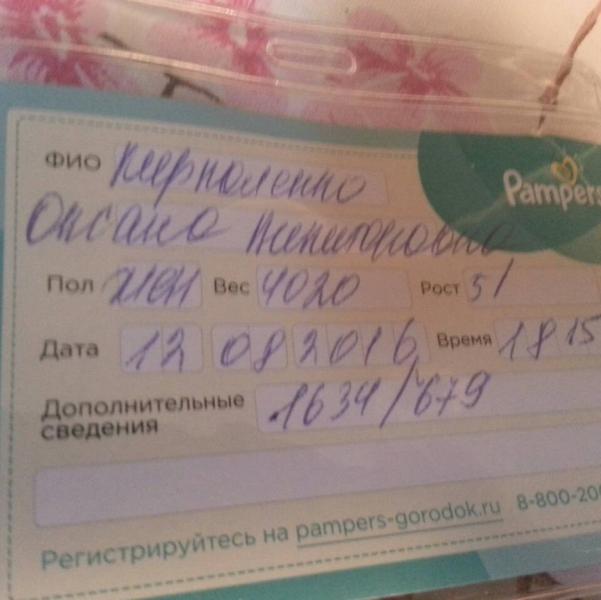 Pampers
ФИО Кирпаленко
Оксана Никиторовна
Пол жен Вес 4020 Рост 51
Дата 12 08 2016 Время 1815
Дополнительные
сведения 1634/679
Регистрируйтесь на pampers-gorodok.ru 8-800-20